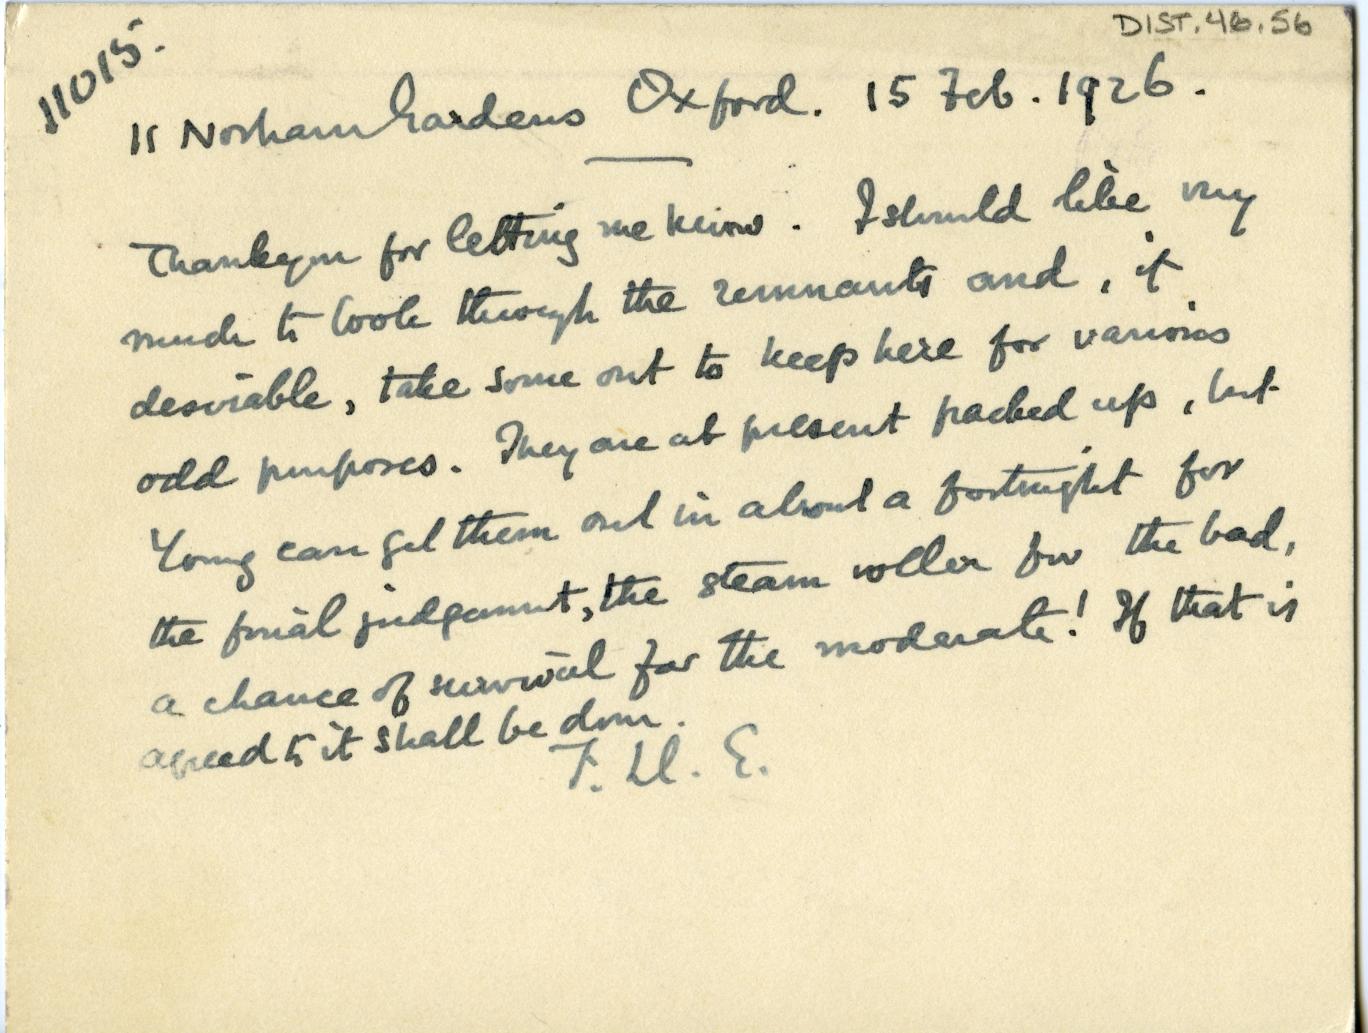 DIST.46.56
11015.
11 Norham Gardens Oxford. 15 Feb. 1926.
Thankyou for letting me know. I should like very
much to look through the remnants and, if
desirable, take some out to keep here for various
odd purposes. They are at present packed up, but
Young can get them out in about a fortnight for
the final judgement, the steam roller for the bad,
a chance of survival for the moderate! If that is
agreed to it shall be done.
F. Ll. G.